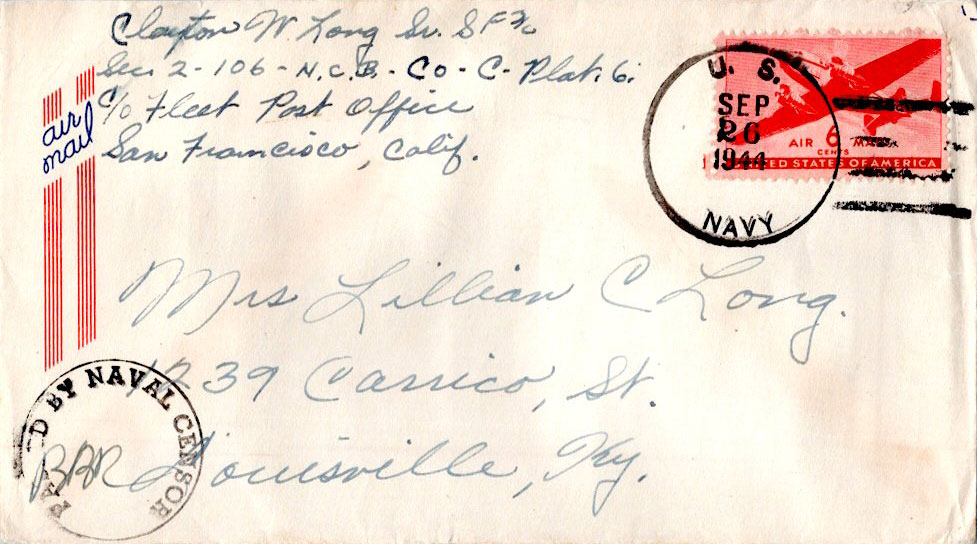 Clayton W Long Sr. S F 3/c
Sec. 2 - 106 - N.C.B. - Co - C - Plat. 6.
C/o Fleet Post Office
San Francisco, Calif.
air
mail
U. S.
SEP
26
1944
NAVY
AIR 6 MAIL
CENTS
UNITED STATES OF AMERICA
Mrs Lillian C Long.
1239 Carrico, St.
Louisville, Ky.
PASSED BY NAVAL CENSOR